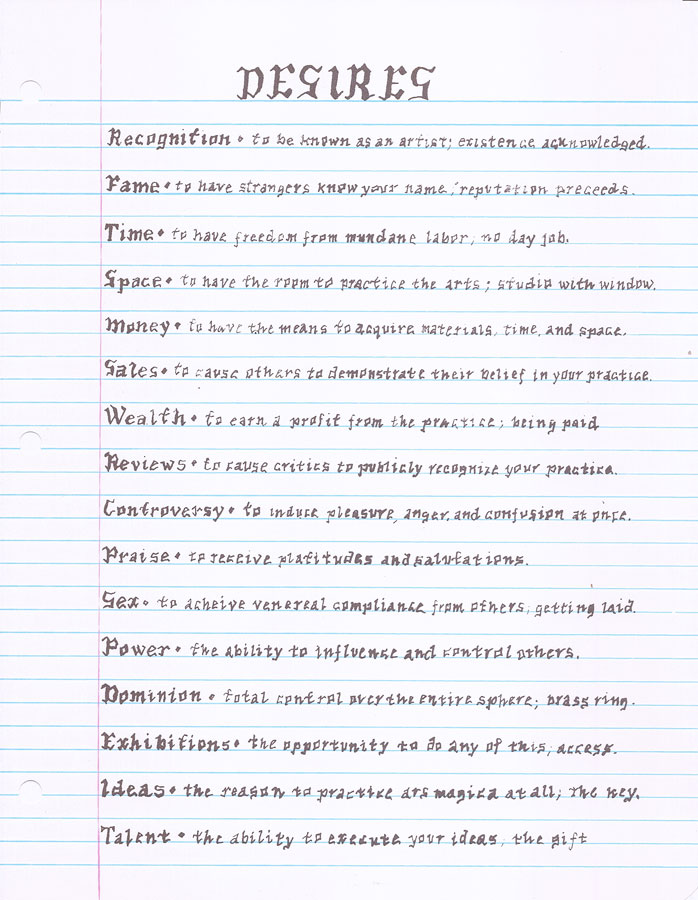 DESIRES
Recognition • to be known as an artist; existence acknowledged.
Fame • to have strangers know your name; reputation preceeds.
Time • to have freedom from mundane labor, no day job.
Space • to have the room to practice the arts; studio with window.
Money • to have the means to acquire materials, time, and space.
Sales • to cause others to demonstrate their belief in your practice.
Wealth • to earn a profit from the practice; being paid
Reviews • to cause critics to publicly recognize your practice.
Controversy • to induce pleasure, anger, and confusion at once.
Praise • to receive platitudes and salutations.
Sex • to acheive venereal compliance from others; getting laid.
Power • the ability to influence and control others.
Dominion • total control over the entire sphere; brass ring.
Exhibitions • the opportunity to do any of this; access.
Ideas • the reason to practice ars magica at all; the key.
Talent • the ability to execute your ideas, the gift